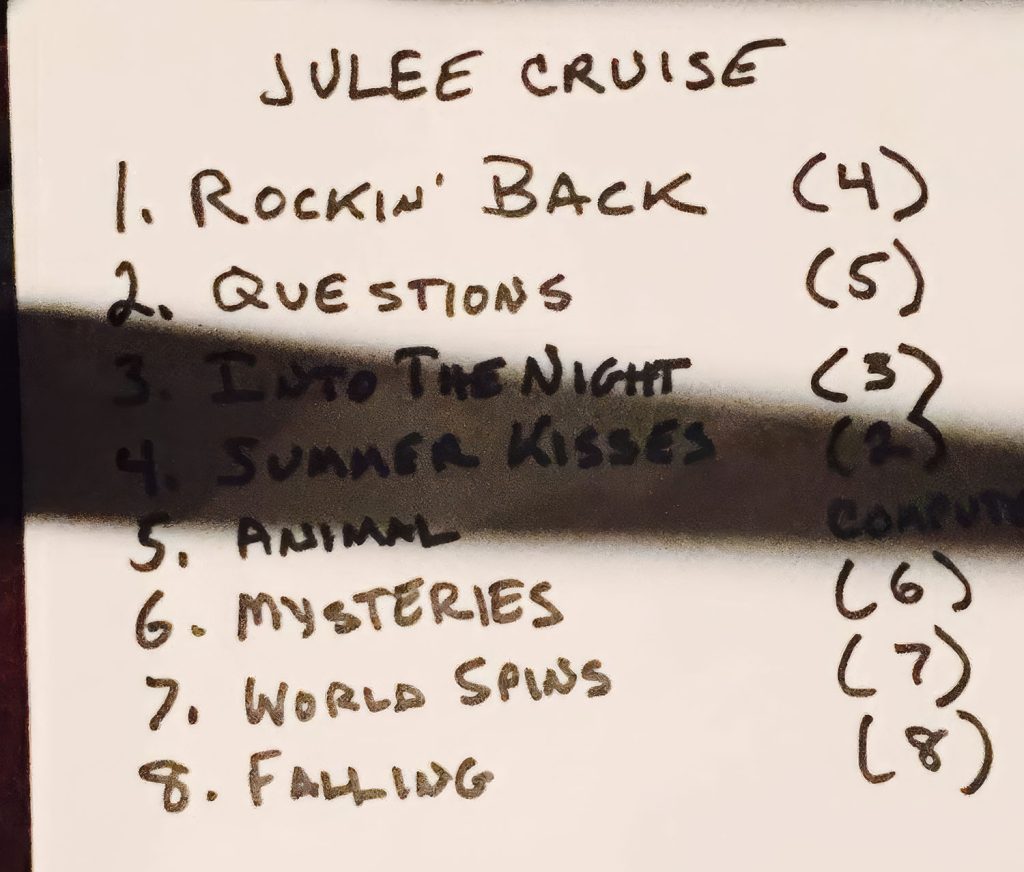 JULEE CRUISE
1. ROCKIN' BACK (4)
2. QUESTIONS (5)
3. INTO THE NIGHT (3)
4. SUMMER KISSES (2)
5. ANIMAL COMPUT
6. MYSTERIES (6)
7. WORLD SPINS (7)
8. FALLING (8)